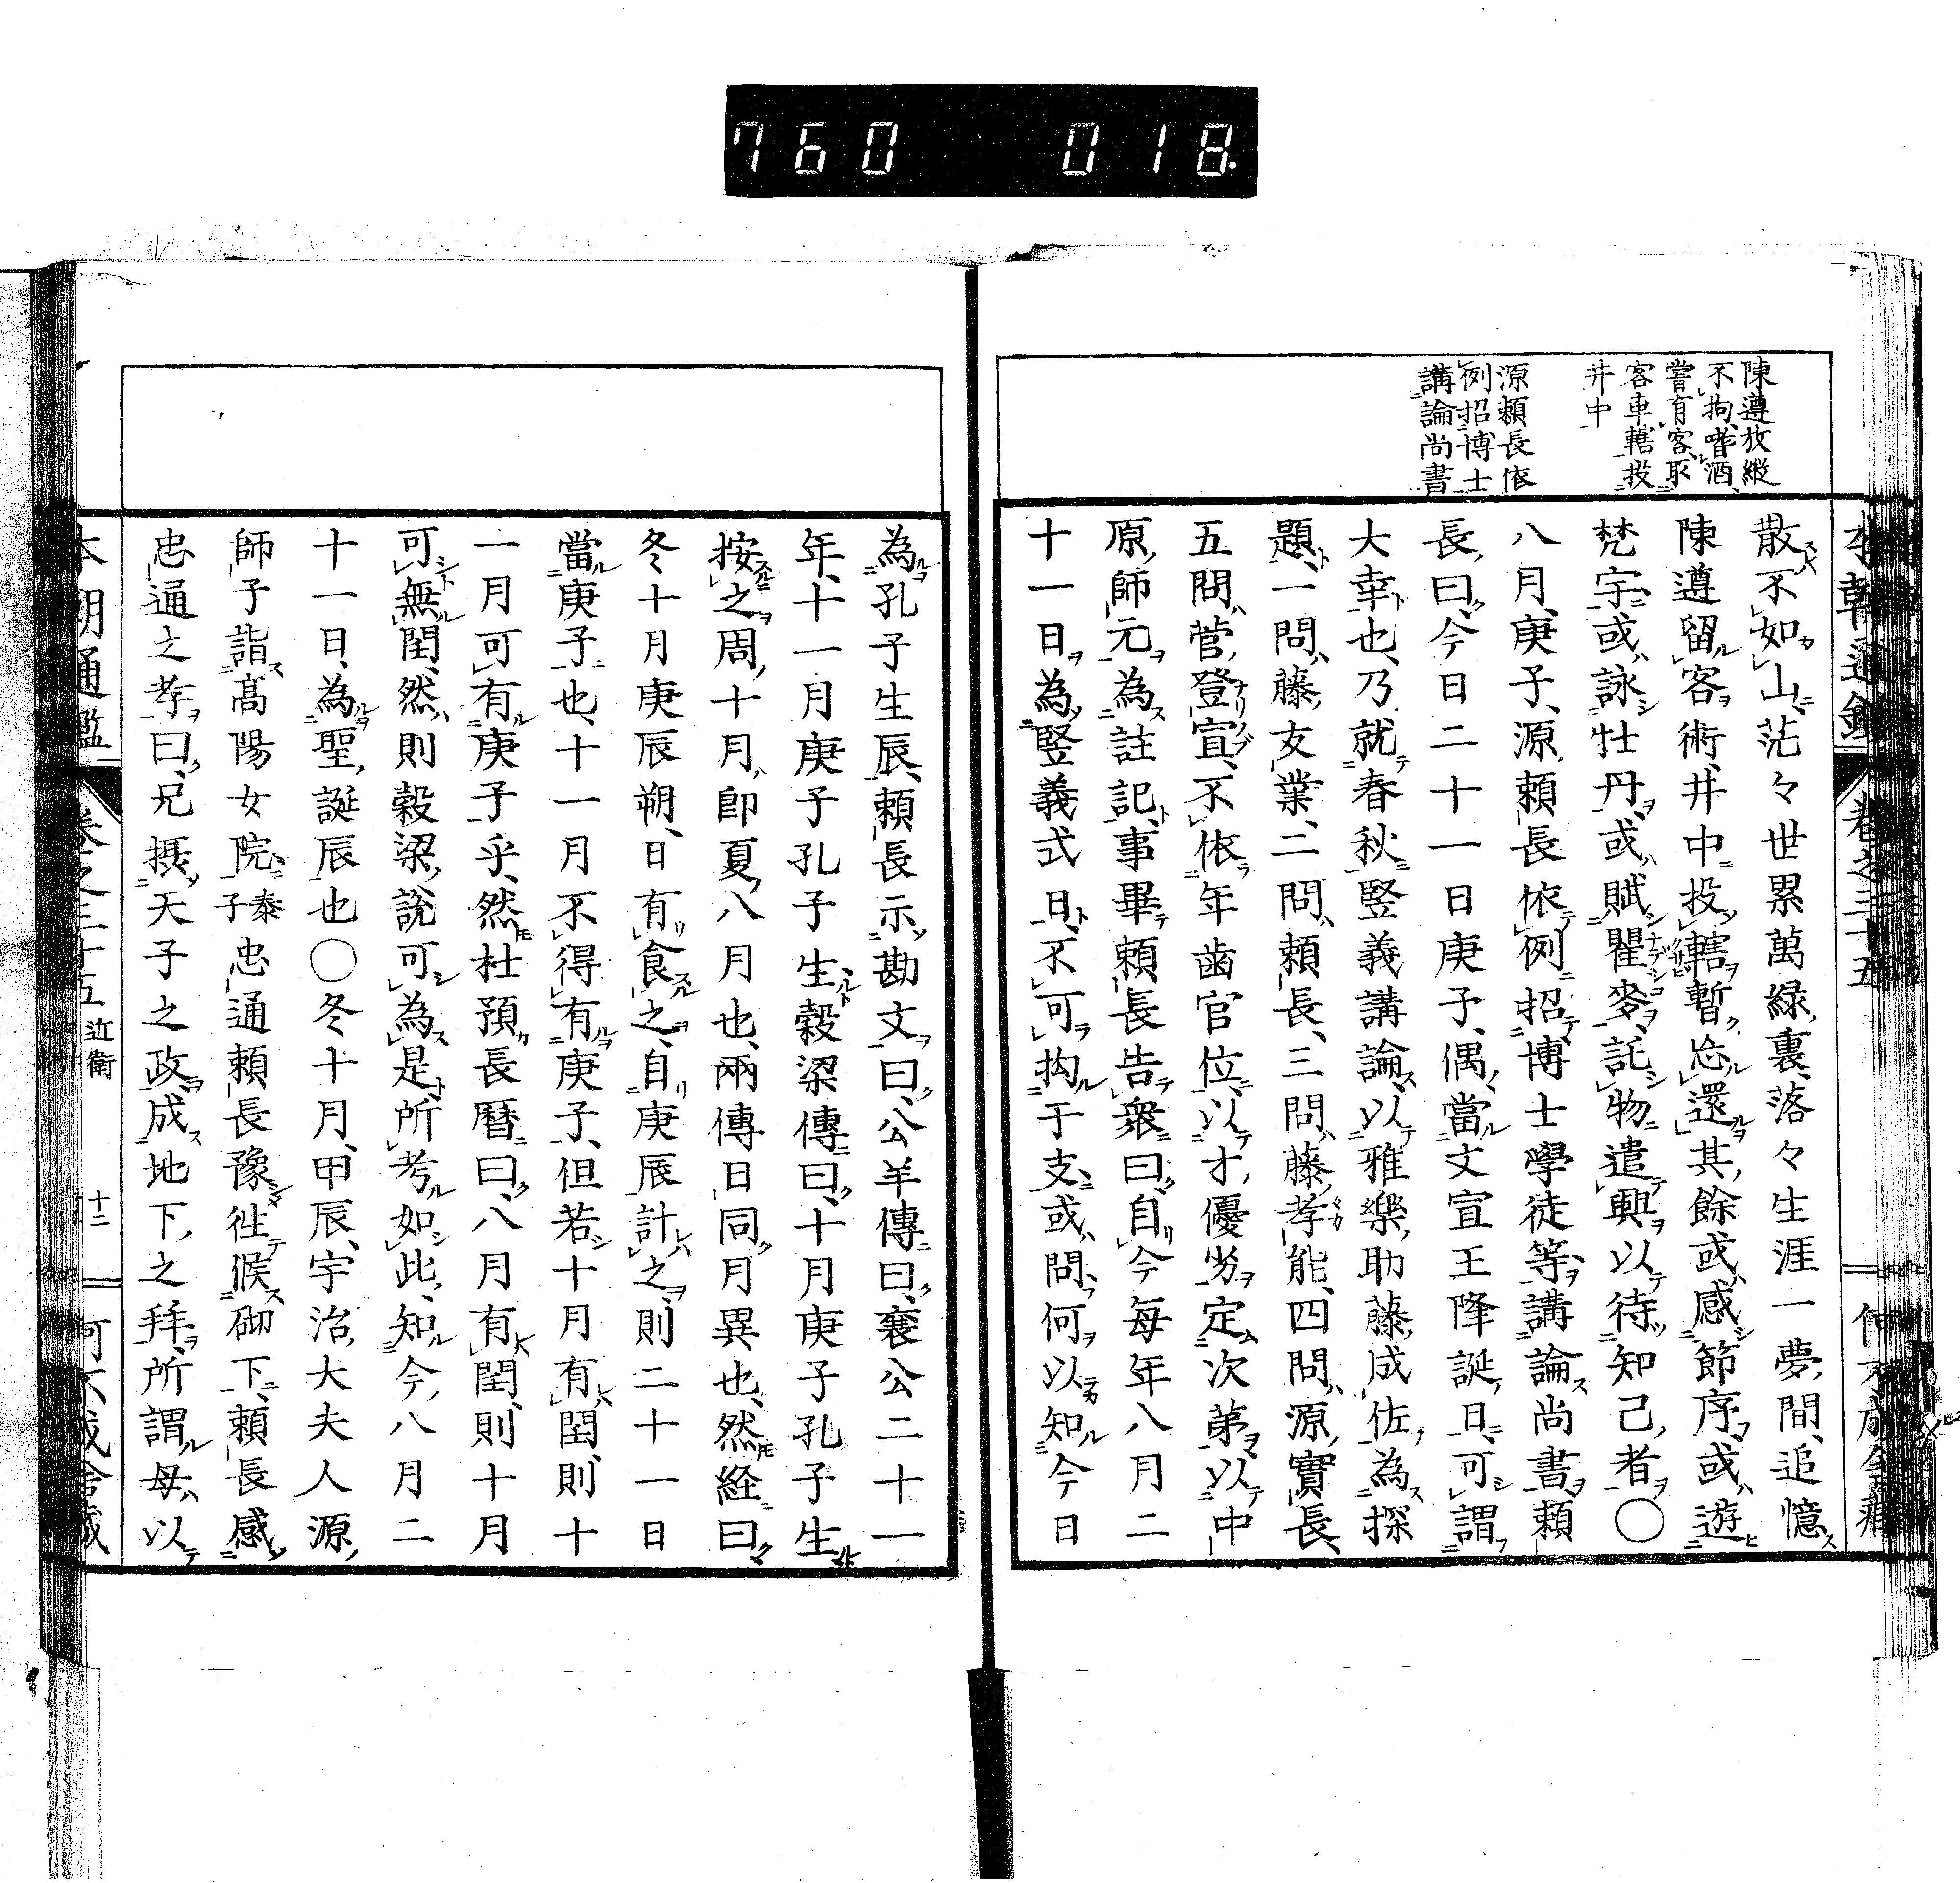 760 018
陳遵放縱
不拘嗜酒
嘗有客取
客車轄投
井中
源賴長依
例招博士
講論尚書
散不如山茫々世累萬緑裏落々生涯一夢間追憶
陳遵留客術井中投轄暫忘還其餘或感節序或遊
梵宇或詠牡丹或賦瞿麥託物遣興以待知己者〇
八月庚子源賴長依例招博士學徒等講論尚書賴
長曰今日二十一日庚子偶當文宣王降誕日可謂
大幸也乃就春秋竪義講論以雅樂助藤成佐為探
題一問藤友業二問賴長三問藤孝能四問源實長
五問菅登宣不依年齒官位以才優劣定次第以中
原師元為註記事畢賴長告衆曰自今每年八月二
十一日為竪義式日不可拘于支或問何以知今日
為孔子生辰賴長示勘文曰公羊傳曰襄公二十一
年十一月庚子孔子生穀梁傳曰十月庚子孔子生
按之周十月即夏八月也兩傳日同月異也然経曰
冬十月庚辰朔日有食之自庚辰計之則二十一日
當庚子也十一月不得有庚子但若十月有閏則十
一月可有庚子乎然杜預長曆曰八月有閏則十月
可無閏然則穀梁說可為是所考如此知今八月二
十一日為聖誕辰也〇冬十月甲辰宇治大夫人源
師子詣高陽女院泰子忠通賴長豫徃候砌下賴長感
忠通之孝曰兄摂天子之政成地下之拜所謂母以
本朝通鑑 卷之三十五 近衛 十二